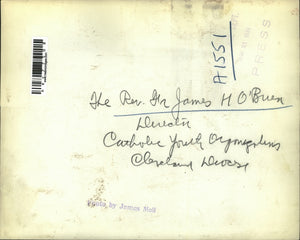 A1551
PRESS
The Rev. Fr James H O'Brien
Director
Catholic Youth Organizations
Cleveland Diocese
Photo by James Meli